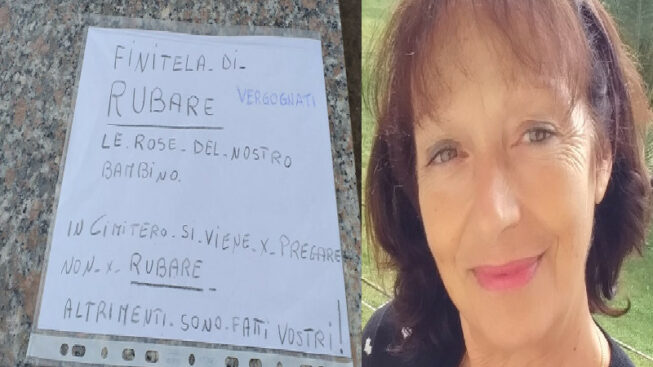 FINITELA - DI -
RUBARE VERGOGNATI
LE - ROSE - DEL - NOSTRO
BAMBINO.
IN CIMITERO - SI - VIENE - X - PREGARE
NON - X - RUBARE -
ALTRIMENTI - SONO - FATTI VOSTRI!